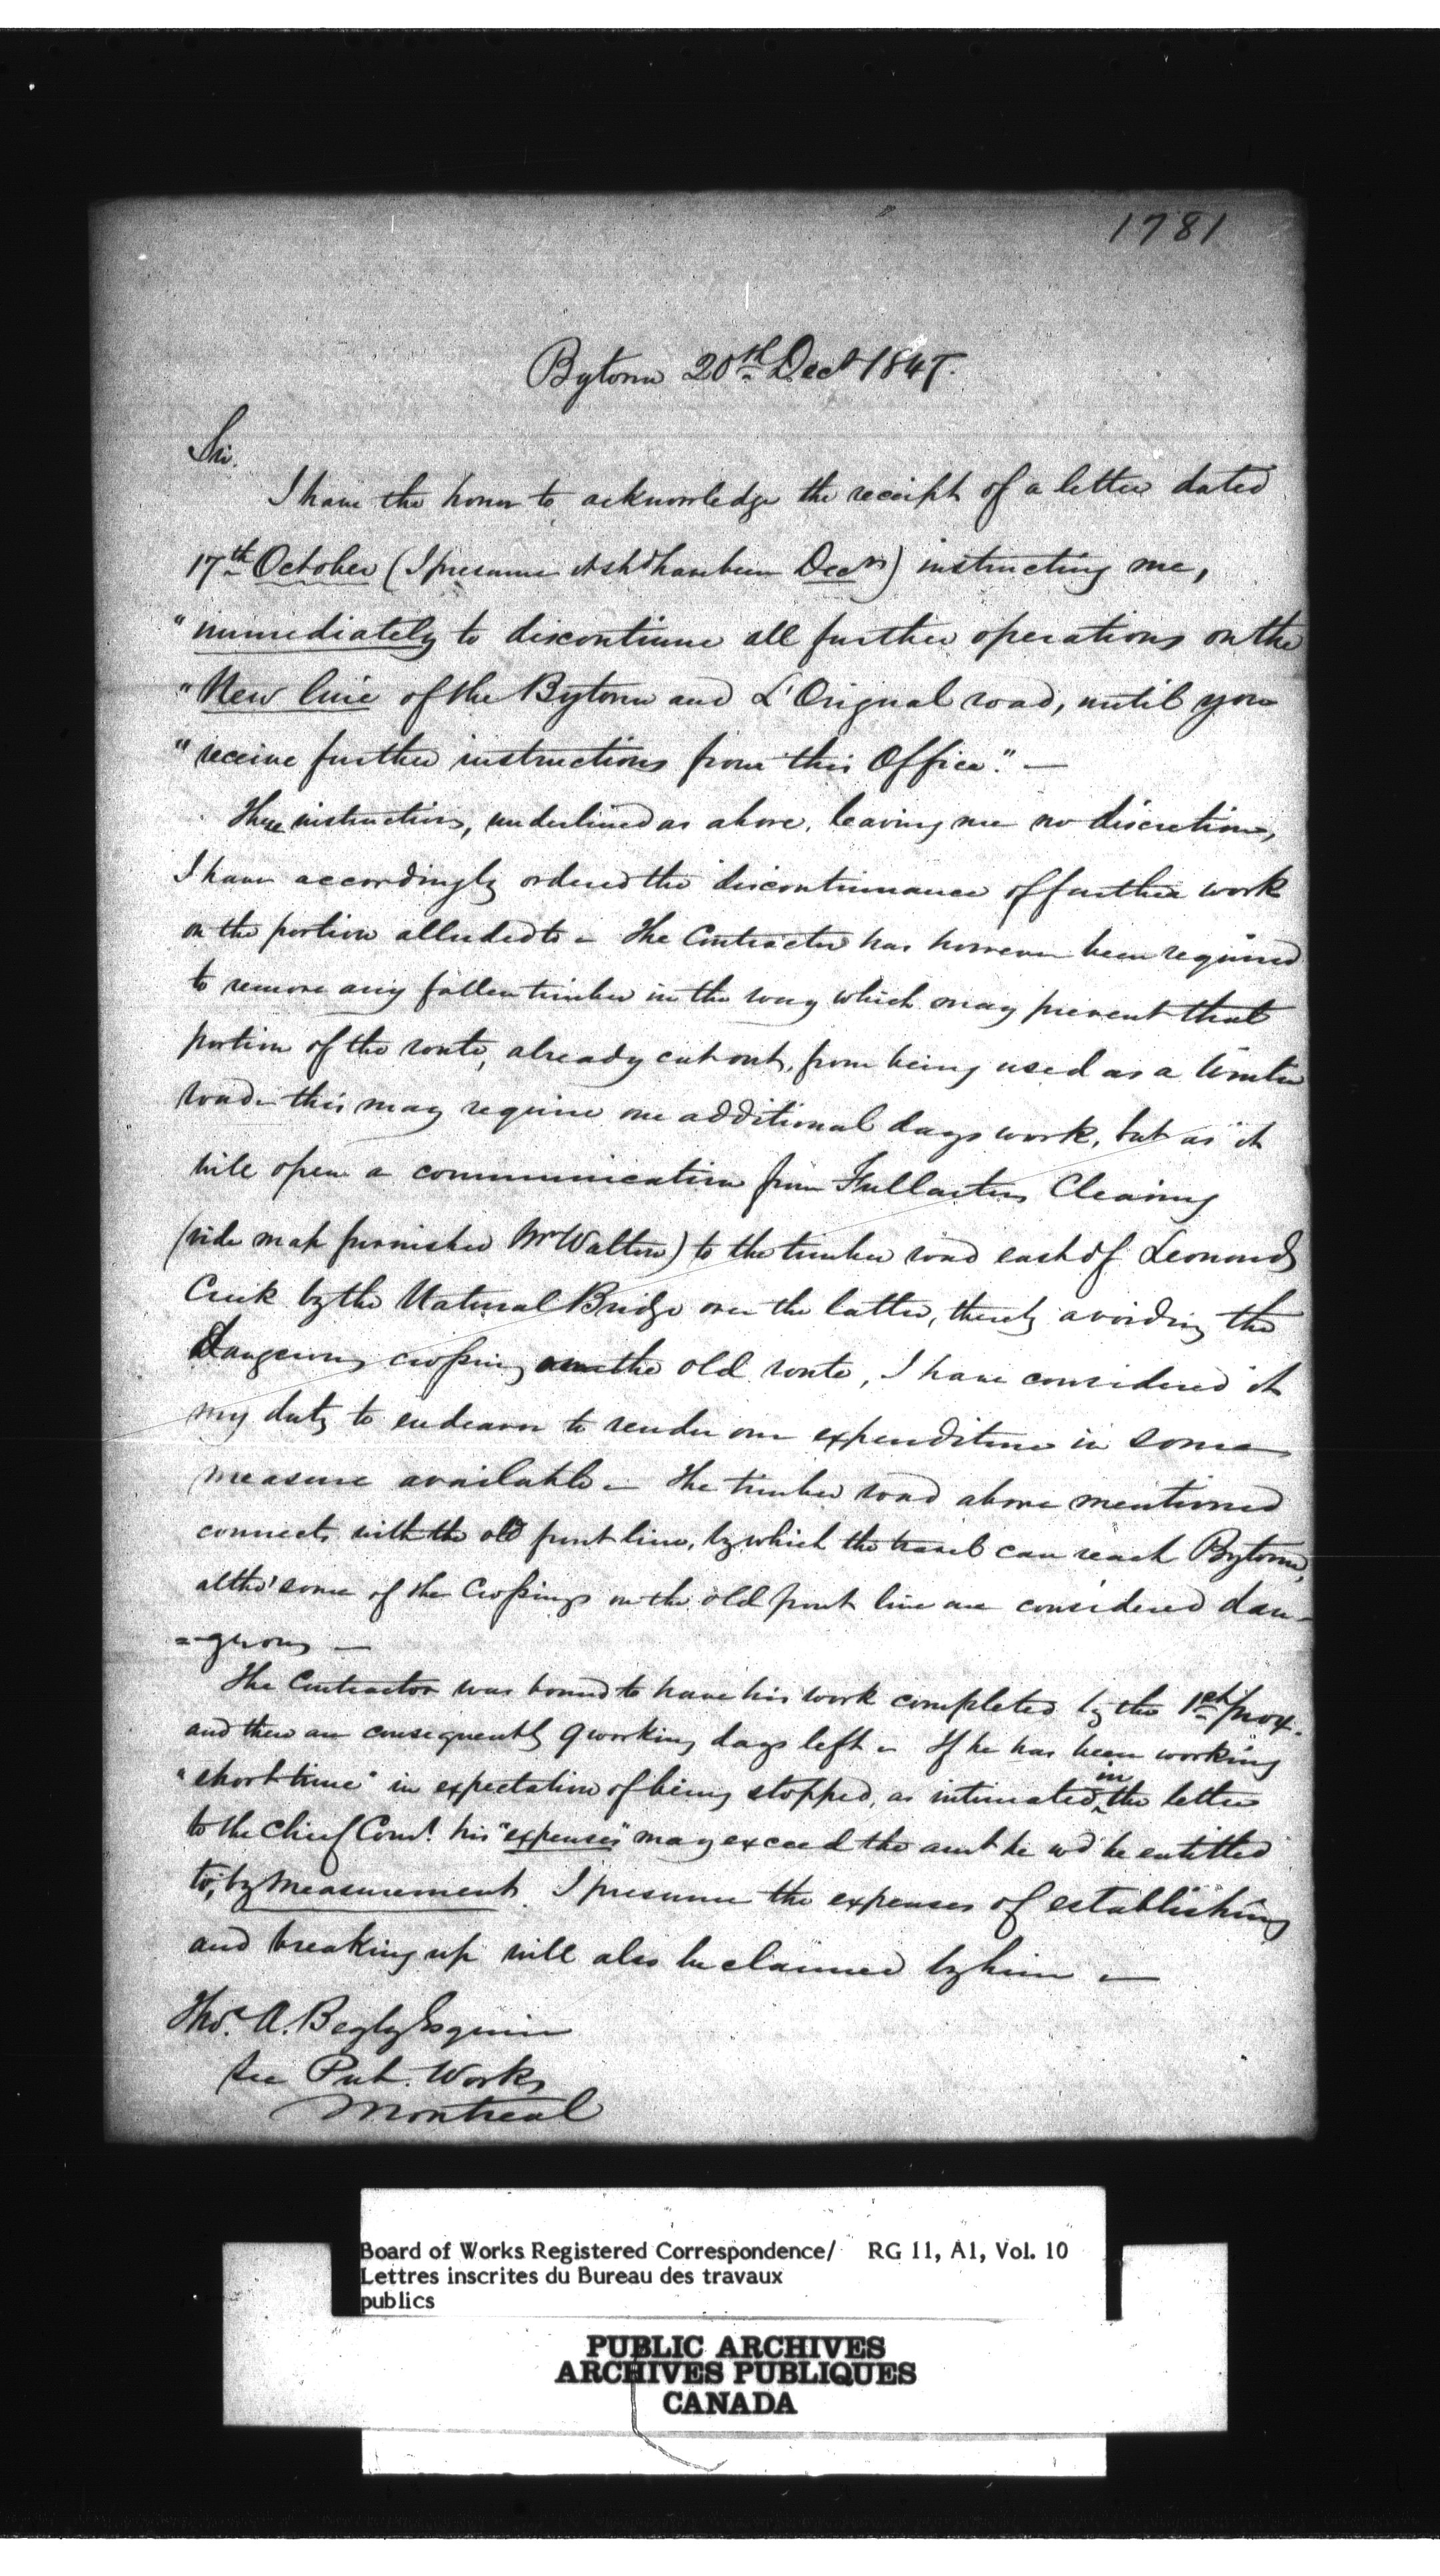 1781
Bytown 20th Decr 1847.
Sir.
I have the honor to acknowledge the receipt of a letter dated
17th October (I presume it shd have been Decr) instructing me,
"immediately to discontinue all further operations on the
"New line of the Bytown and L'Orignal road, until you
"receive further instructions from this Office." —
These instructions, underlined as above, leaving me no discretion,
I have accordingly ordered the discontinuance of further work
on the portion alluded to – The Contractor has however been required
to remove any fallen timber in the way which may prevent that
portion of the route, already cut out, from being used as a Winter
road – this may require one additional days work, but as it
will open a communication from Fullartons Clearing
(vide map furnished Mr Walton) to the timber road east of Leonards
Creek by the Natural Bridge over the latter, thereby avoiding the
dangerous crossing on the old route, I have considered it
my duty to endeavor to render our expenditure in some
measure available – The timber road above mentioned
connects with the old front line, by which the travel can reach Bytown,
altho' some of the Crossings on the old front line are considered dan-
=gerous —
The Contractor was bound to have his work completed by the 1st prox.
and there are consequently 9 working days left – If he has been working
"short time" in expectation of being stopped, as intimated in the letter
to the Chief Comr. his "expenses" may exceed the amt he wd be entitled
to, by measurement. I presume the expenses of establishing
and breaking up will also be claimed by him —
Thos. A. Begly Esquire
Sec Pub. Works
Montreal
Board of Works Registered Correspondence/ RG 11, A1, Vol. 10
Lettres inscrites du Bureau des travaux
publics
PUBLIC ARCHIVES
ARCHIVES PUBLIQUES
CANADA